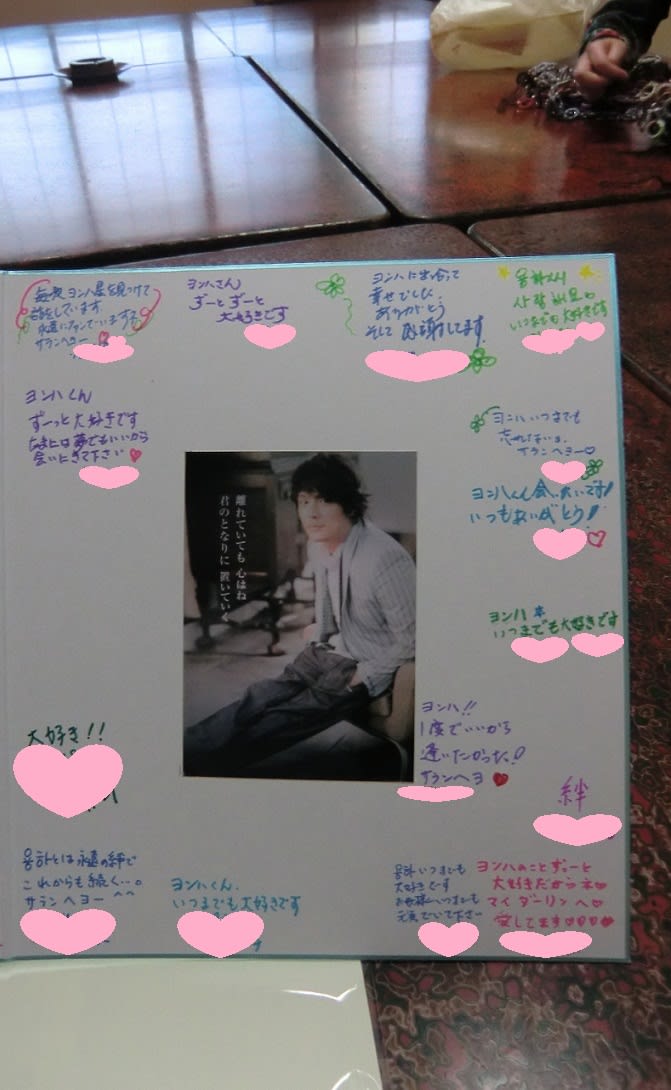 毎夜ヨンハ星を見つけて
話をしています
永遠にファンでいますヨ
サランヘヨー
ヨンハさん
ずーとずーと
大好きです
ヨンハに出会って
幸せでした
ありがとう
そして 感謝してます
용하씨
사랑해요
いつまでも 大好きです
ヨンハくん
ずーっと大好きです
たまには夢でもいいから
会いにきて下さい
ヨンハいつまでも
忘れないヨ。
サランヘヨー♡
ヨンハくん会いたいです!
いつもありがとう!
ヨンハ
いつまでも大好きです
離れていても 心はね
君のとなりに 置いていく
ヨンハ!!
1度でいいから
逢いたかった!
サランヘヨ
大好き!!
絆
용하とは永遠の絆で
これからも続く…。
サランヘヨー ^^
ヨンハくん.
いつまでも大好きです
용하 いつまでも
大好きです
お母様 いつまでも
元気でいて下さい
ヨンハのことずーっと
大好きだからネ♡
マイダーリンへ♡
愛してます♡♡♡♡